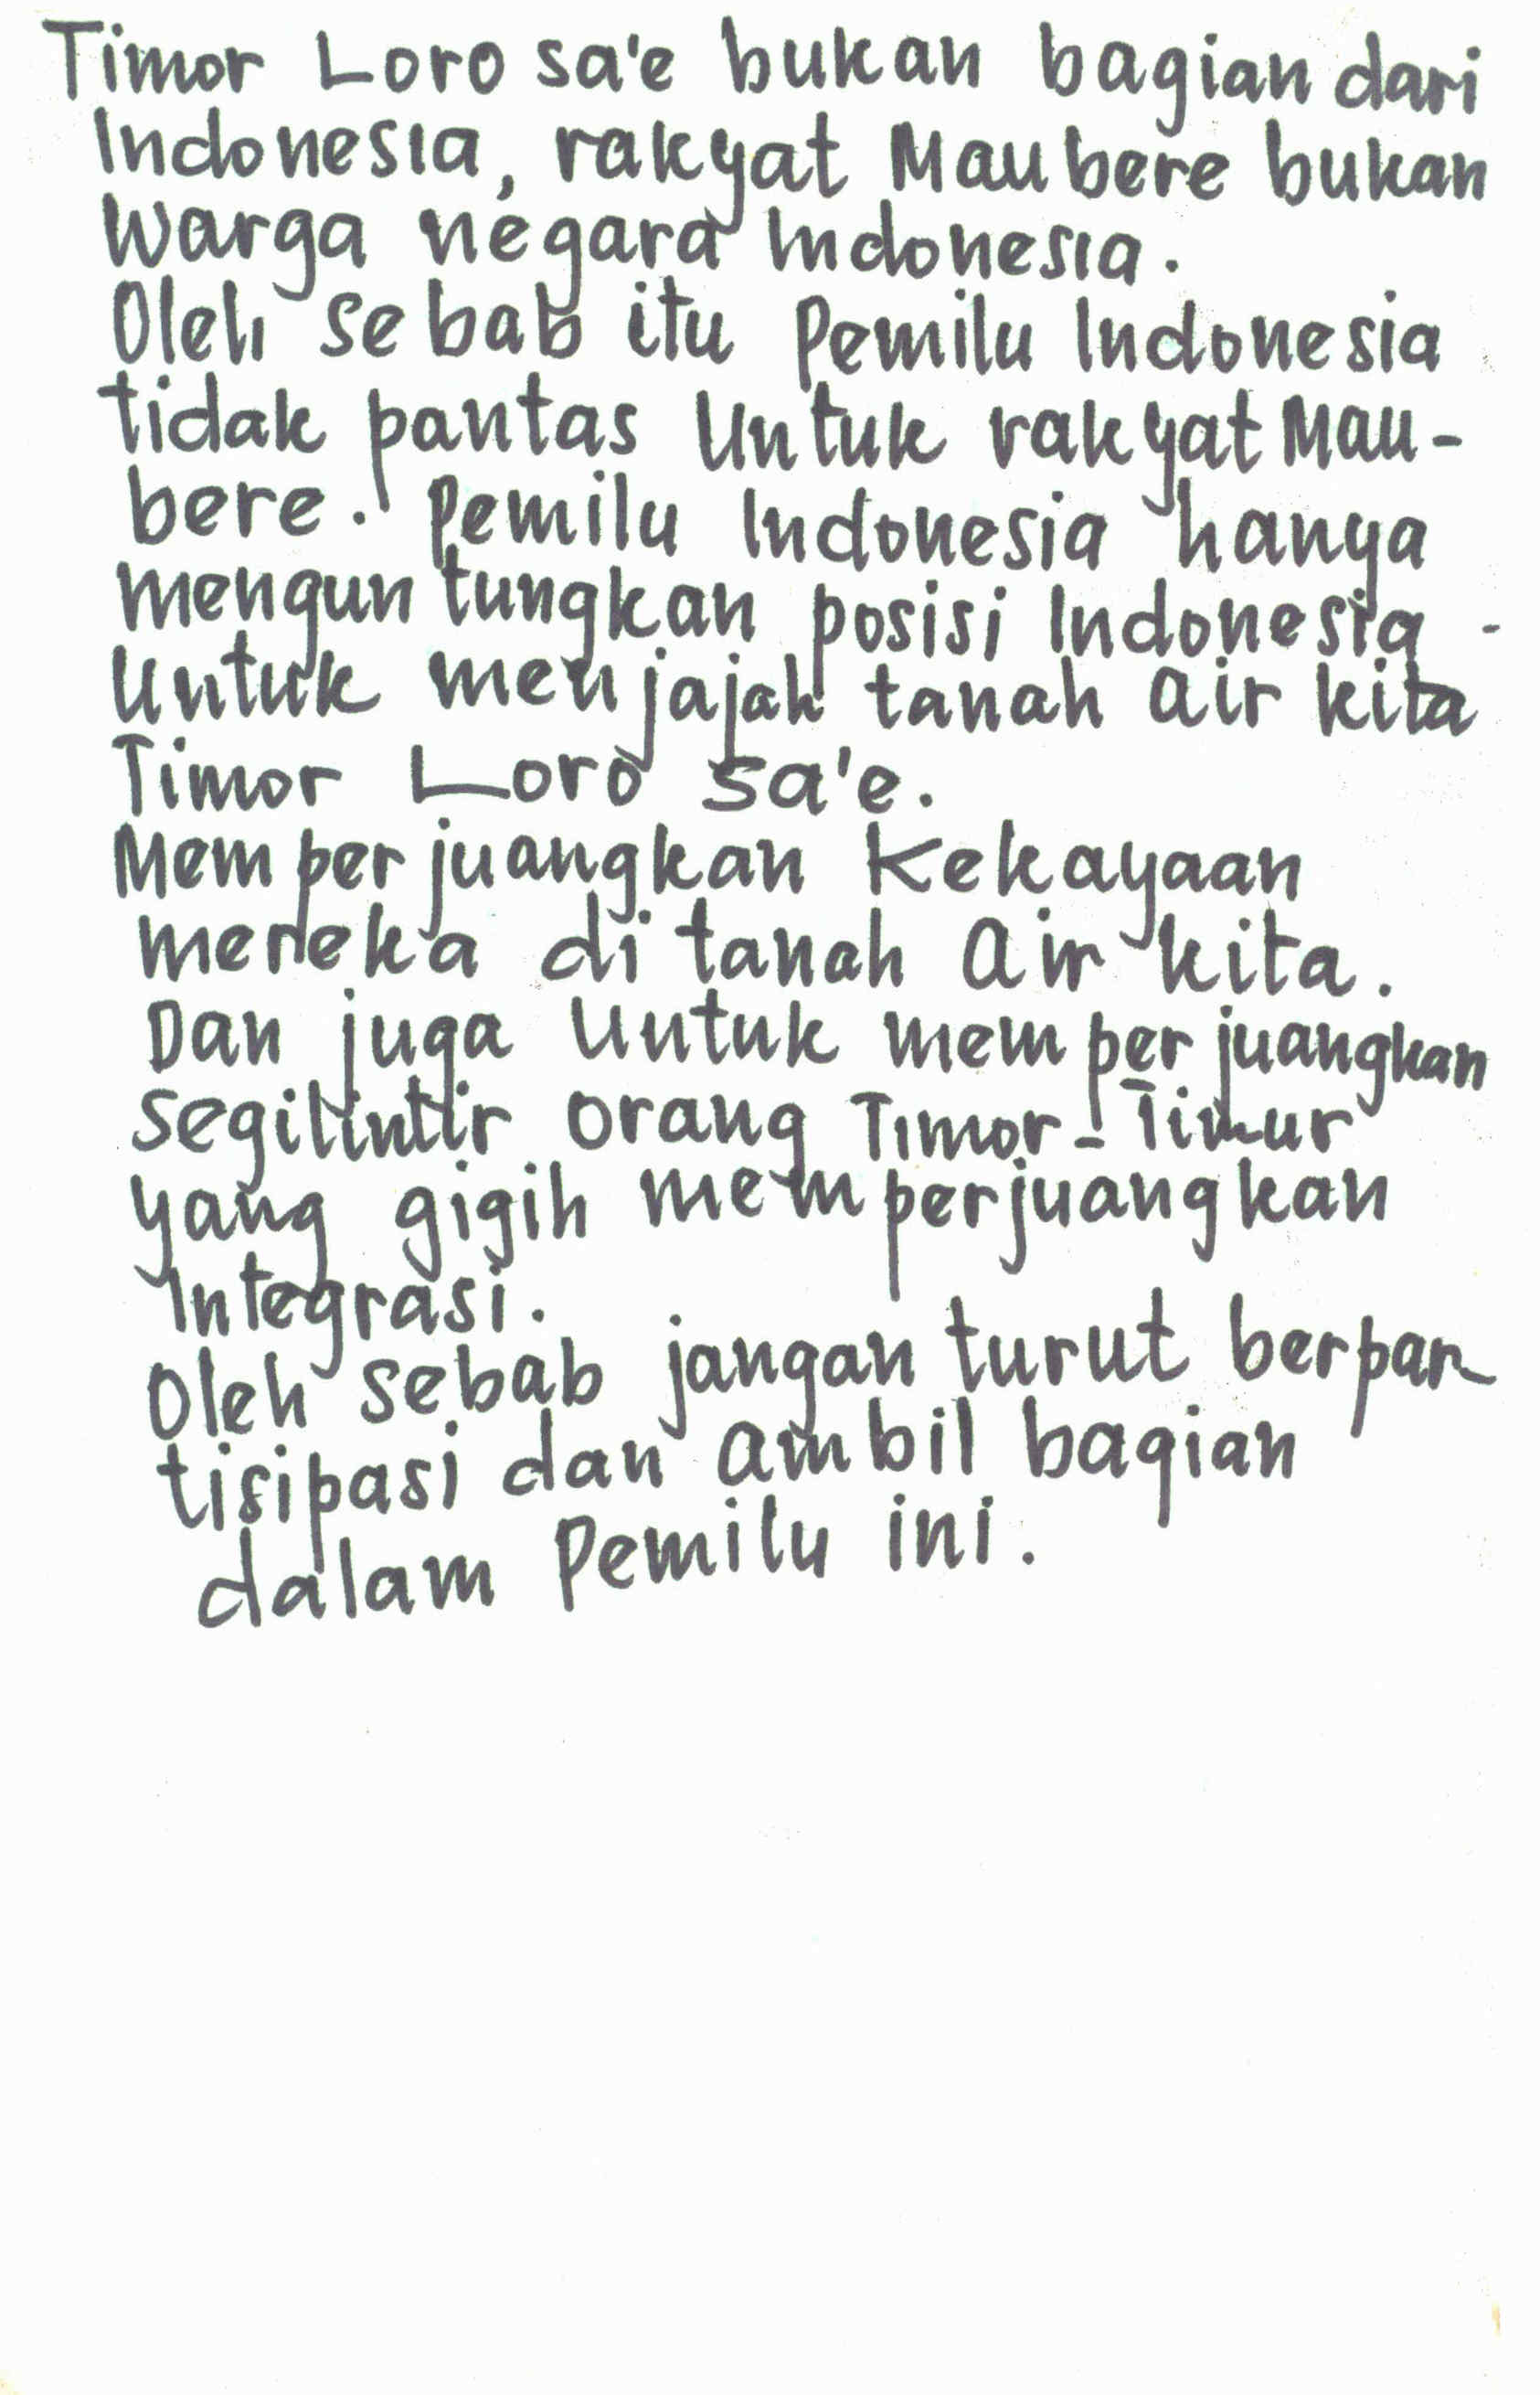 Timor Loro sa'e bukan bagian dari
Indonesia, rakyat Maubere bukan
Warga negara Indonesia.
Oleh sebab itu Pemilu Indonesia
tidak pantas Untuk rakyat Mau-
bere. Pemilu Indonesia hanya
menguntungkan posisi Indonesia -
Untuk menjajah tanah air kita
Timor Loro sa'e.
Memperjuangkan Kekayaan
mereka di tanah air kita.
Dan juga Untuk memperjuangkan
segilintir orang Timor-Timur
yang gigih memperjuangkan
Integrasi.
Oleh sebab jangan turut berpar
tisipasi dan ambil bagian
dalam Pemilu ini.